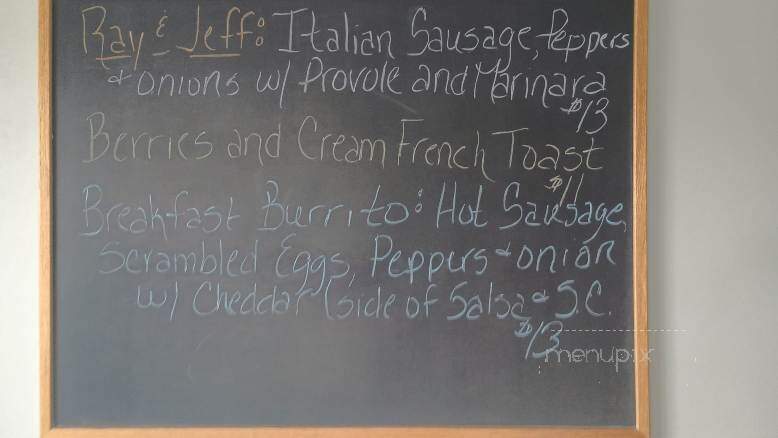 Ray & Jeff: Italian Sausage, Peppers
& onions w/ Provole and Marinara
$13
Berries and Cream French Toast
$11
Breakfast Burrito: Hot Sausage,
Scrambled Eggs, Peppers & onion
w/ Cheddar (side of Salsa & S.C.
$13
menupix